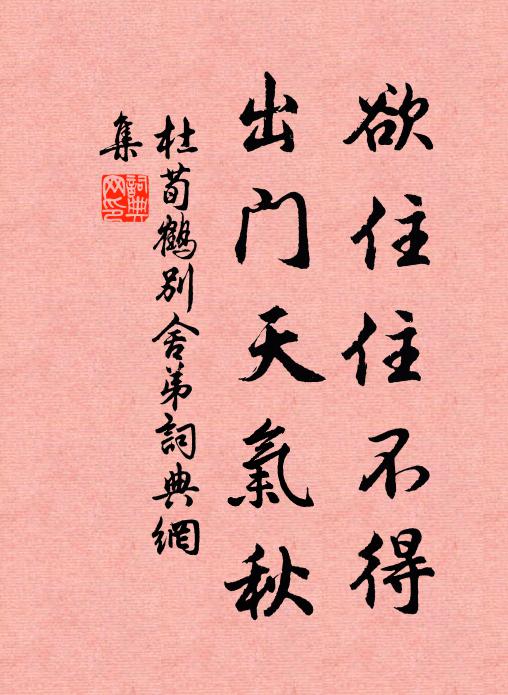 欲住住不得
出门天氣秋
杜荀鶴别舍弟詞典網
集
詞典
网印